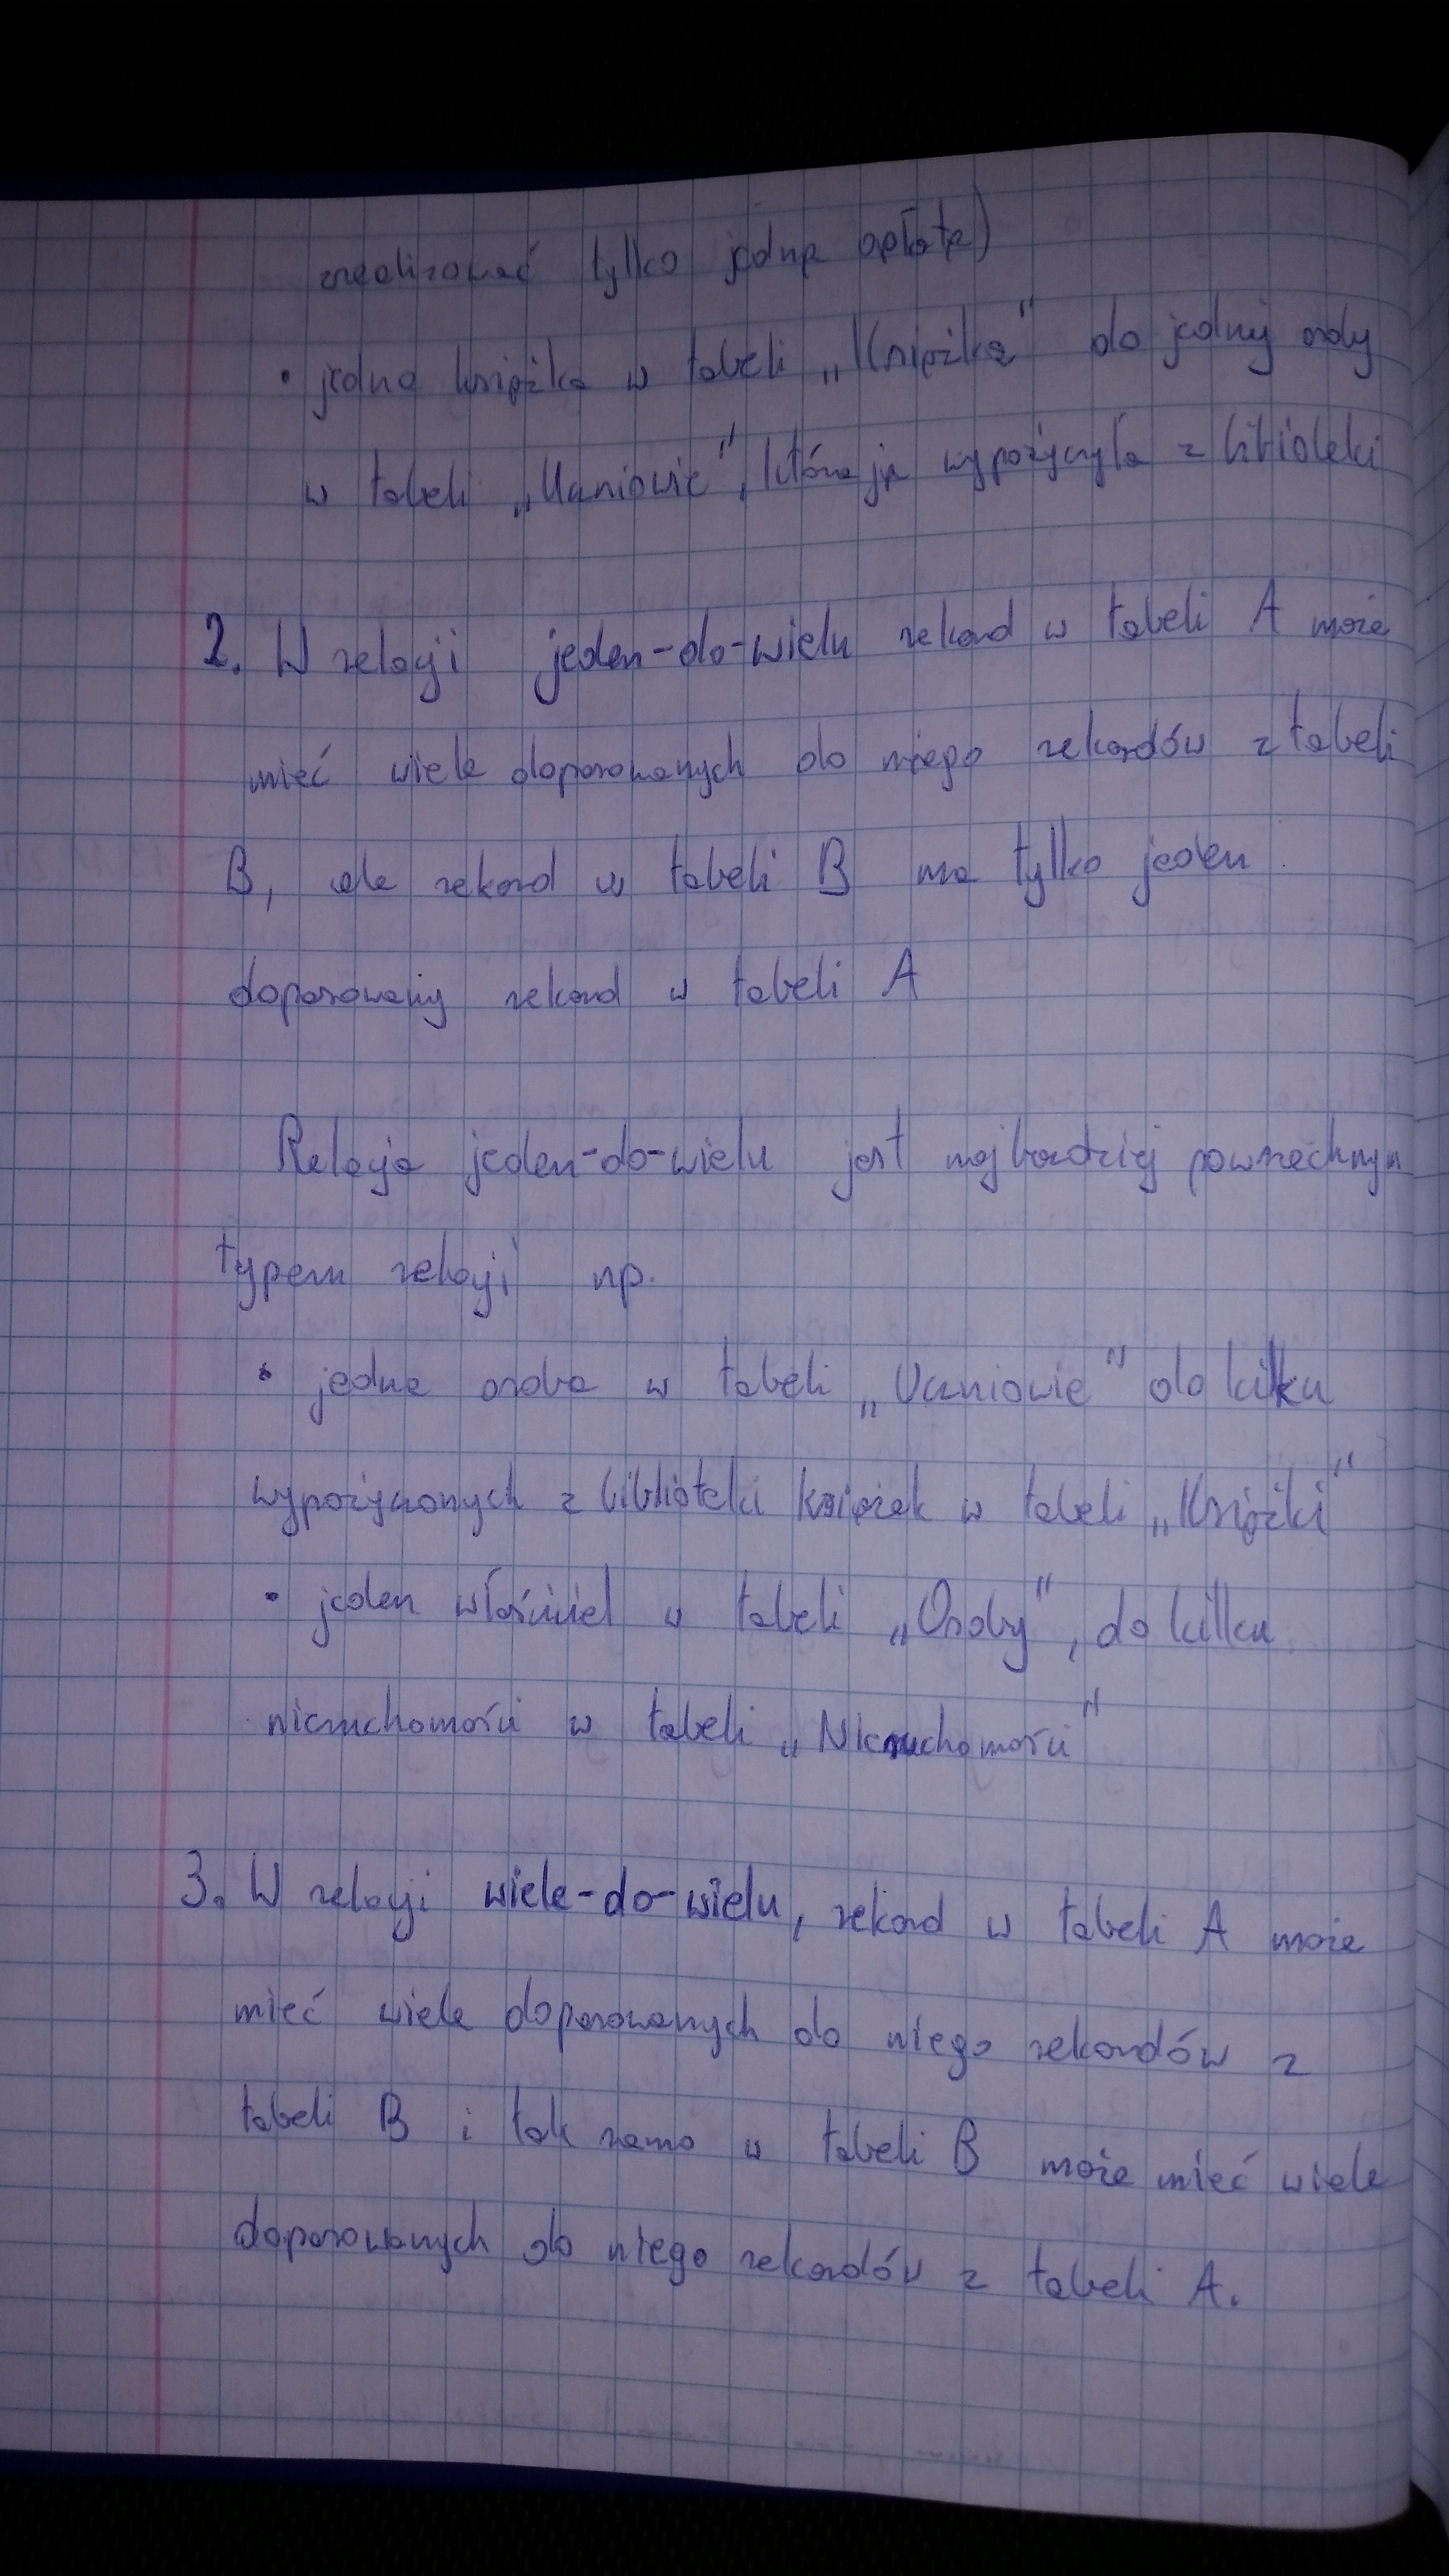 zrealizować tylko jedną opłatę)
• jedna książka w tabeli „Książka" do jednej osoby
w tabeli „Uczniowie", która ją wypożyczyła z biblioteki
2. W relacji jeden-do-wielu rekord w tabeli A może
mieć wiele doporowanych do niego rekordów z tabeli
B, ale rekord w tabeli B ma tylko jeden
doporowany rekord w tabeli A
Relacja jeden-do-wielu jest najbardziej powszechnym
typem relacji np.
• jedna osoba w tabeli „Uczniowie" do kilku
wypożyczonych z biblioteki książek w tabeli „Książki"
• jeden właściciel w tabeli „Osoby", do kilku
nieruchomości w tabeli „Nieruchomości"
3. W relacji wiele-do-wielu, rekord w tabeli A może
mieć wiele doporowanych do niego rekordów z
tabeli B i tak samo w tabeli B może mieć wiele
doporowanych do niego rekordów z tabeli A.